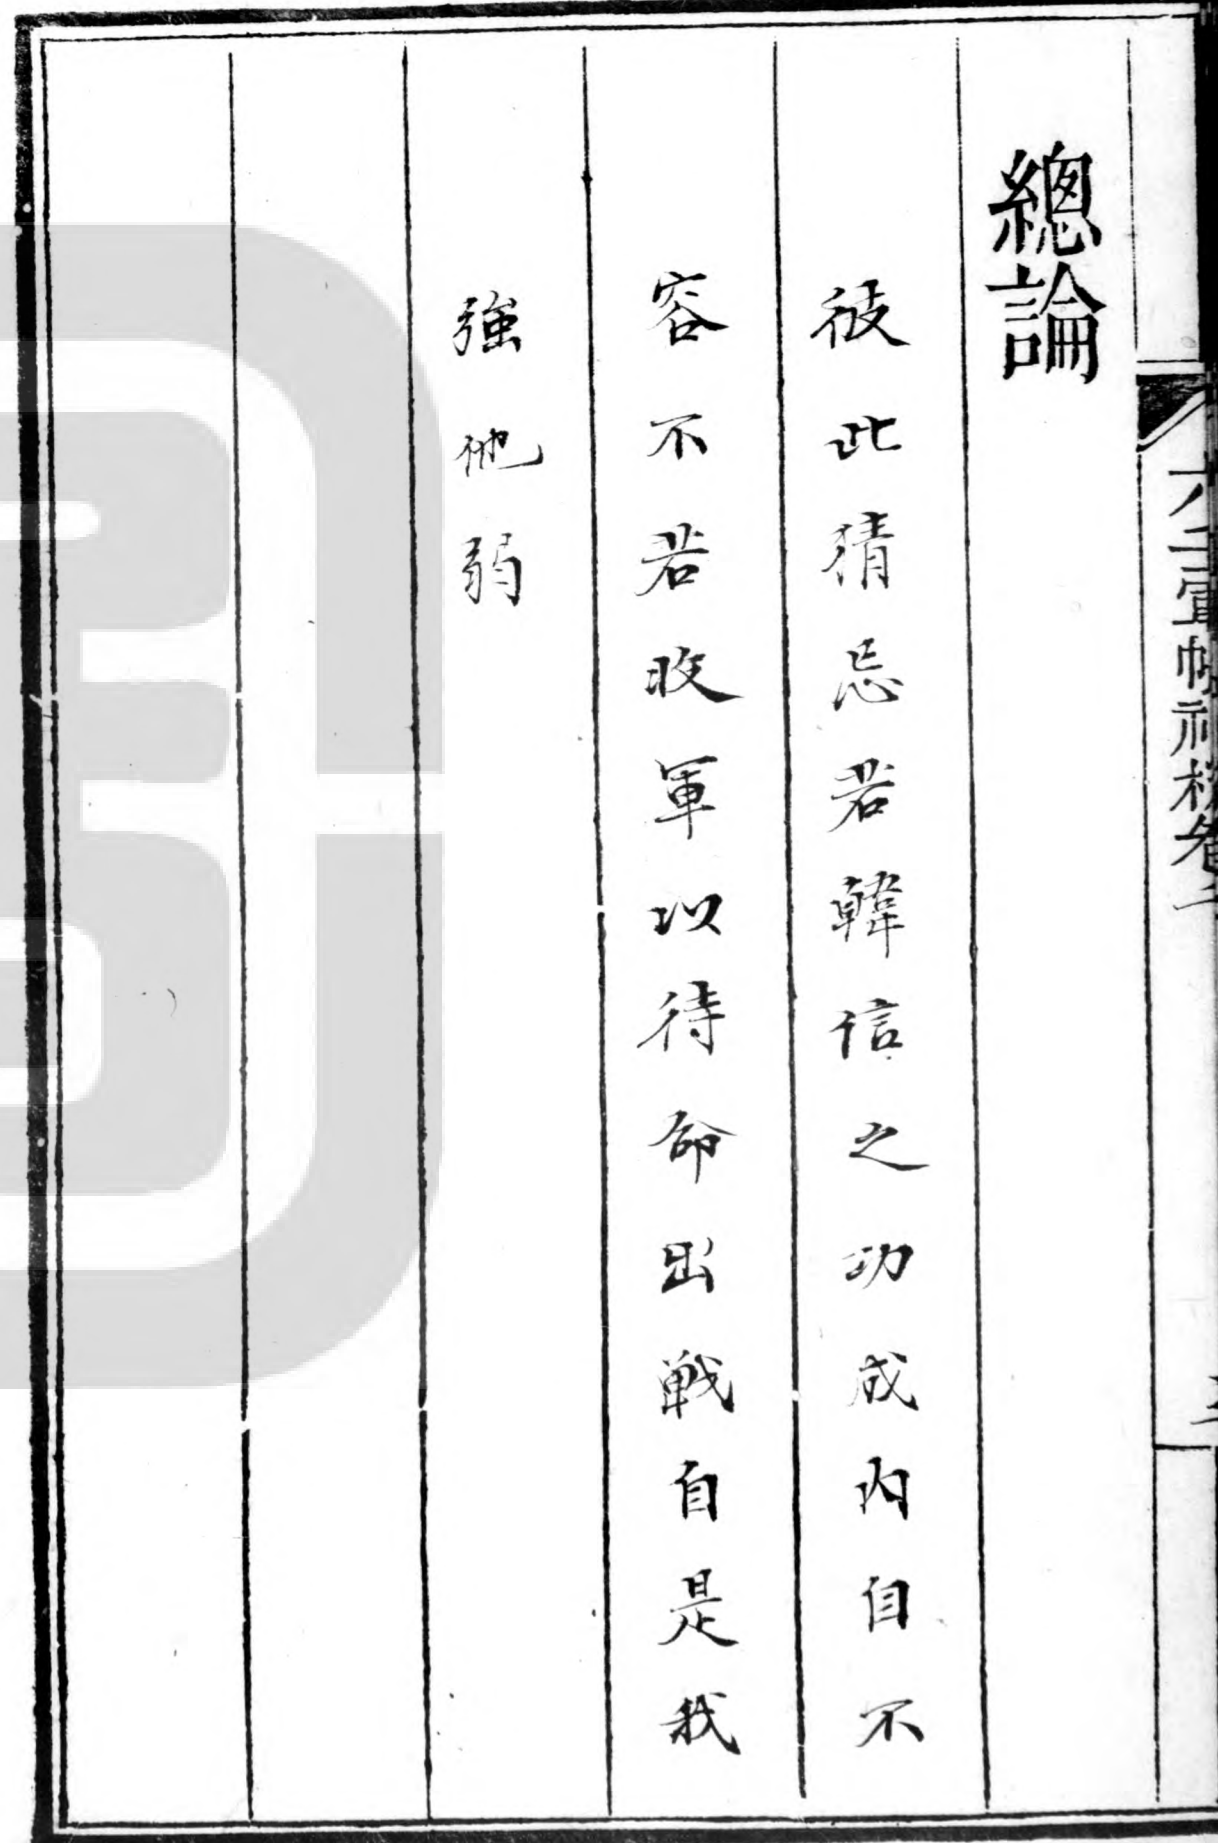 六壬軍帳神機卷二
總論
彼此猜忌若韓信之功成內自不
容不若收軍以待命出戰自是我
強他弱